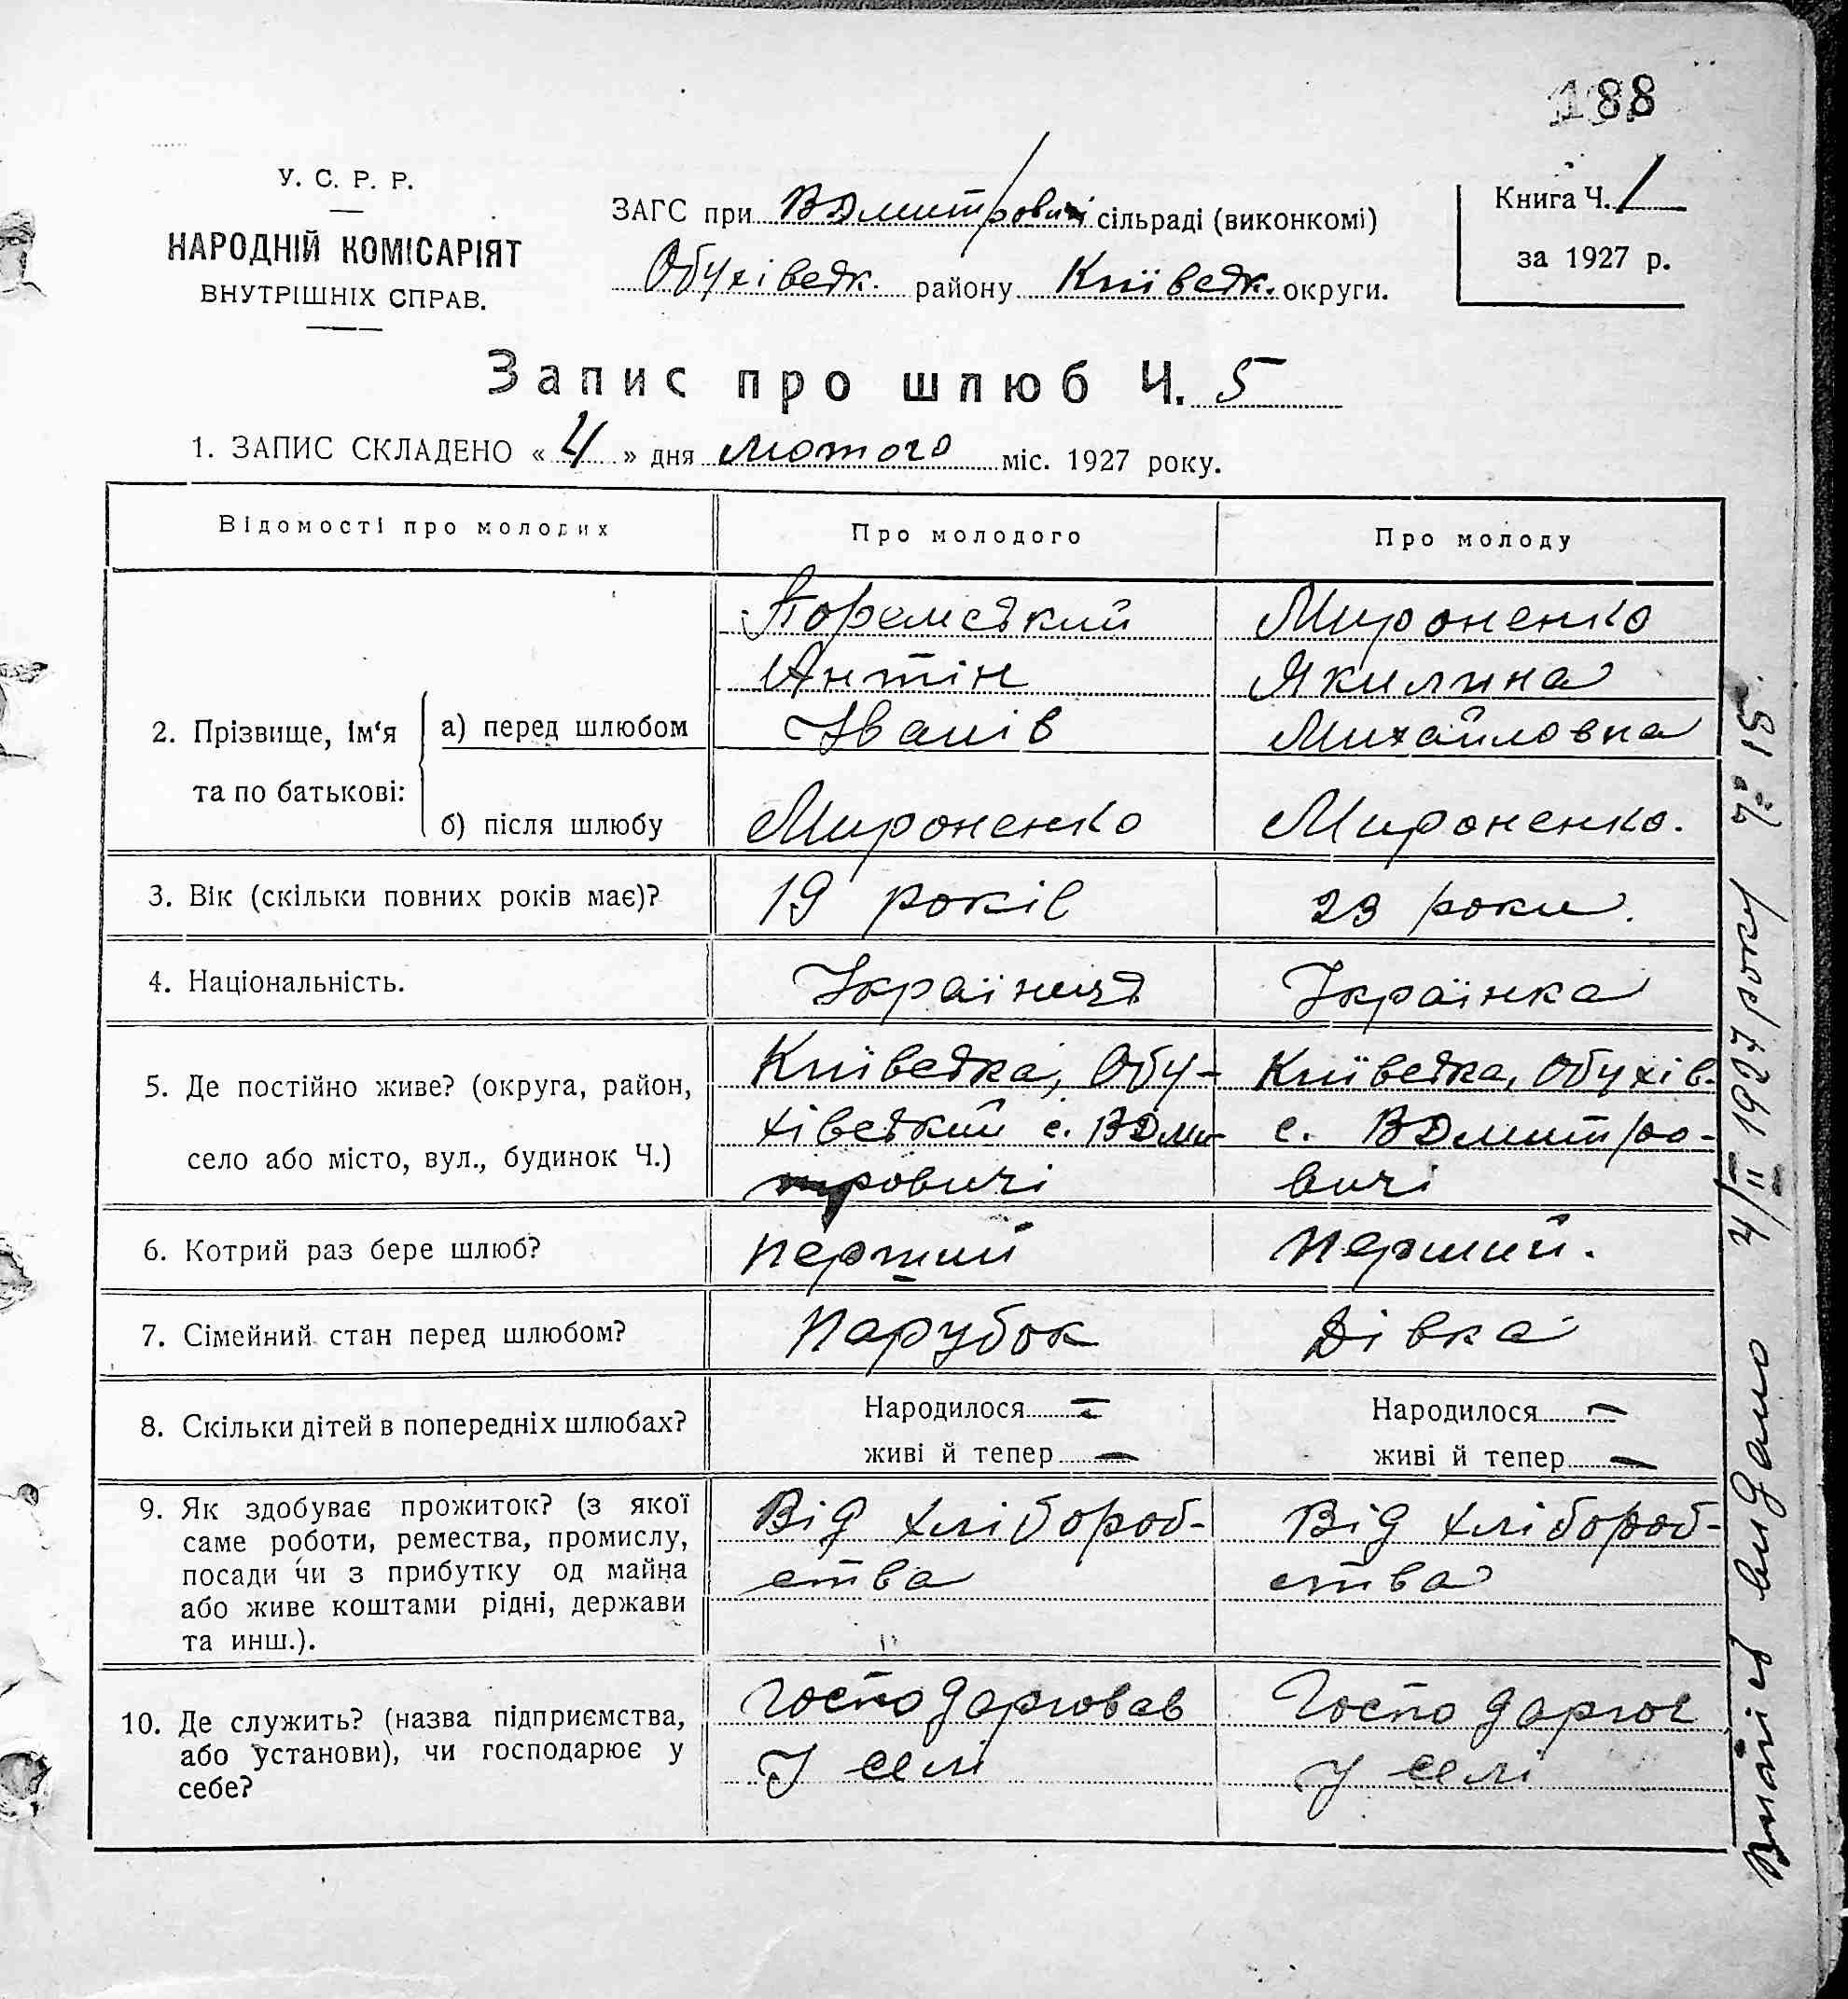 188
У. С. Р. Р.
НАРОДНІЙ КОМІСАРІЯТ
ВНУТРІШНІХ СПРАВ.
ЗАГС при ВДмитровичі сільраді (виконкомі)
Обухівськ. району Київськ. округи.
Книга Ч. 1
за 1927 р.
Запис про шлюб Ч. 5
1. ЗАПИС СКЛАДЕНО « 4 » дня лютого міс. 1927 року.
Відомості про молодих
Про молодого
Про молоду
2. Прізвище, ім‘я та по батькові:
а) перед шлюбом
Антін
Іванів
Мироненко
Якилина
Михайловна
б) після шлюбу
Мироненко
Мироненко.
3. Вік (скільки повних років має)?
19 років
23 роки.
4. Національність.
Українець
Українка
5. Де постійно живе? (округа, район,
село або місто, вул., будинок Ч.)
Київська, Обу-
хівський с. ВДми-
тровичі
Київська, Обухів.
с. ВДмитро-
вичі
6. Котрий раз бере шлюб?
перший
перший.
7. Сімейний стан перед шлюбом?
Парубок
Дівка
8. Скільки дітей в попередніх шлюбах?
Народилося —
живі й тепер —
Народилося —
живі й тепер —
9. Як здобуває прожиток? (з якої
саме роботи, ремества, промислу,
посади чи з прибутку од майна
або живе коштами рідні, держави
та инш.).
Від хлібороб-
ства
Від хлібороб-
ства
10. Де служить? (назва підприємства,
або установи), чи господарює у
себе?
Господарював
У селі
Господарює
У селі
Витяг видано 4/II 1927 року № 15.